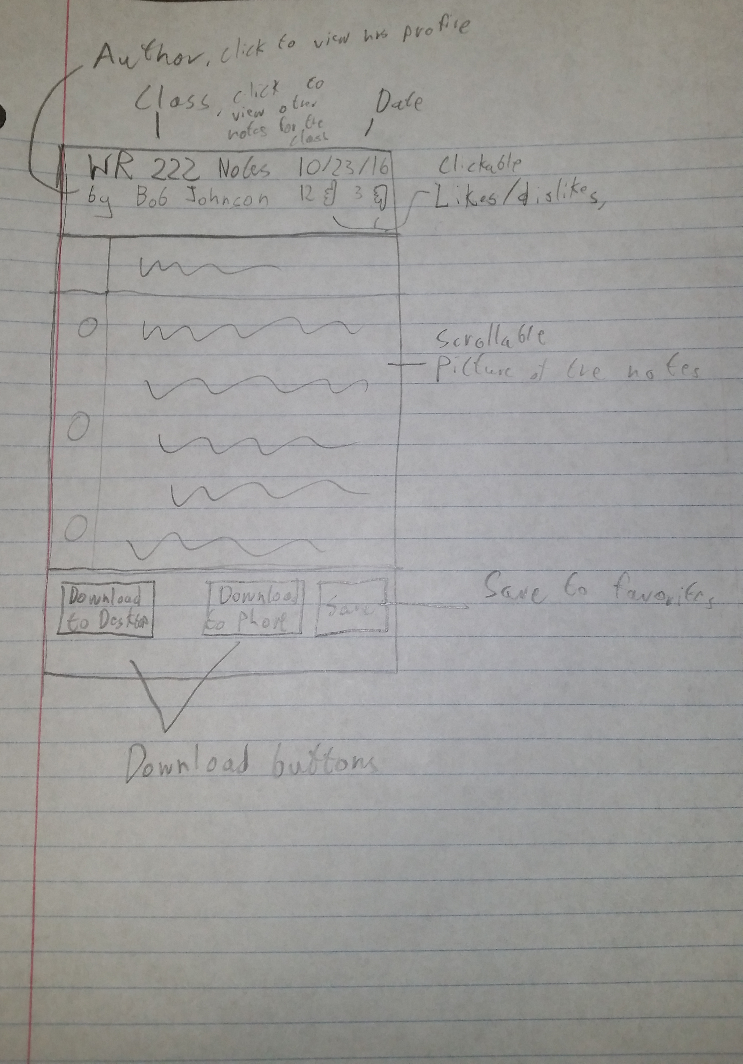 Author, click to view his profile
Class, click to
view other
notes for the
class
Date
WR 222 Notes 10/23/16
by Bob Johnson 12 3
Clickable
Likes/dislikes,
Scrollable
Picture of the notes
Download
to Desktop
Download
to Phone
Save
Save to favorites
Download buttons